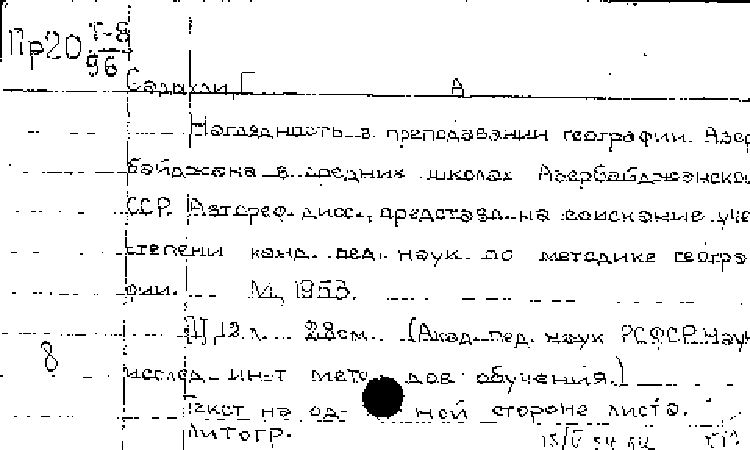 Пр20 Т-8
96
Садыхли, Г. А.
Наглядность в преподавании географии Азер
байджана в средних школах Азербайджанской
ССР. Автореф. дисс., представл. на соискание уче
степени канд. пед. наук по методике геогра
фии. М., 1953.
[1], 12 л. 28 см. (Акад. пед. наук РСФСР. Науч
8
исслед. ин-т методов обучения.)
Текст на одной стороне листа.
Литогр.